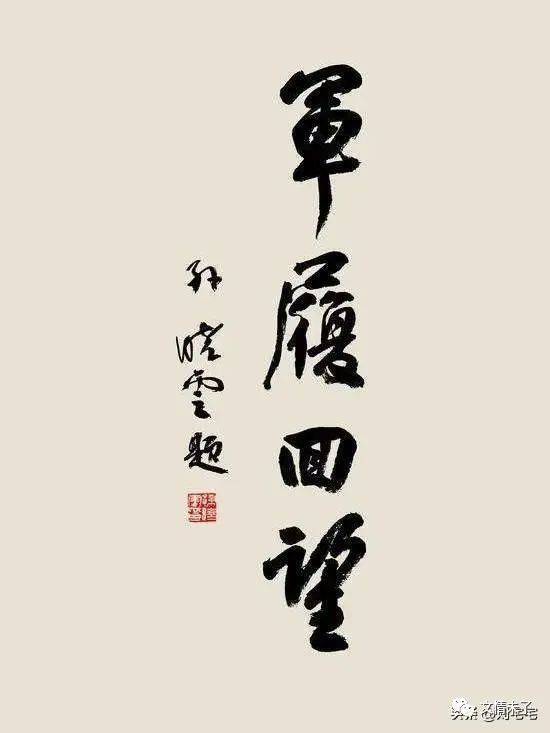 軍履回望
孫曉雲題
文情夫子
头条